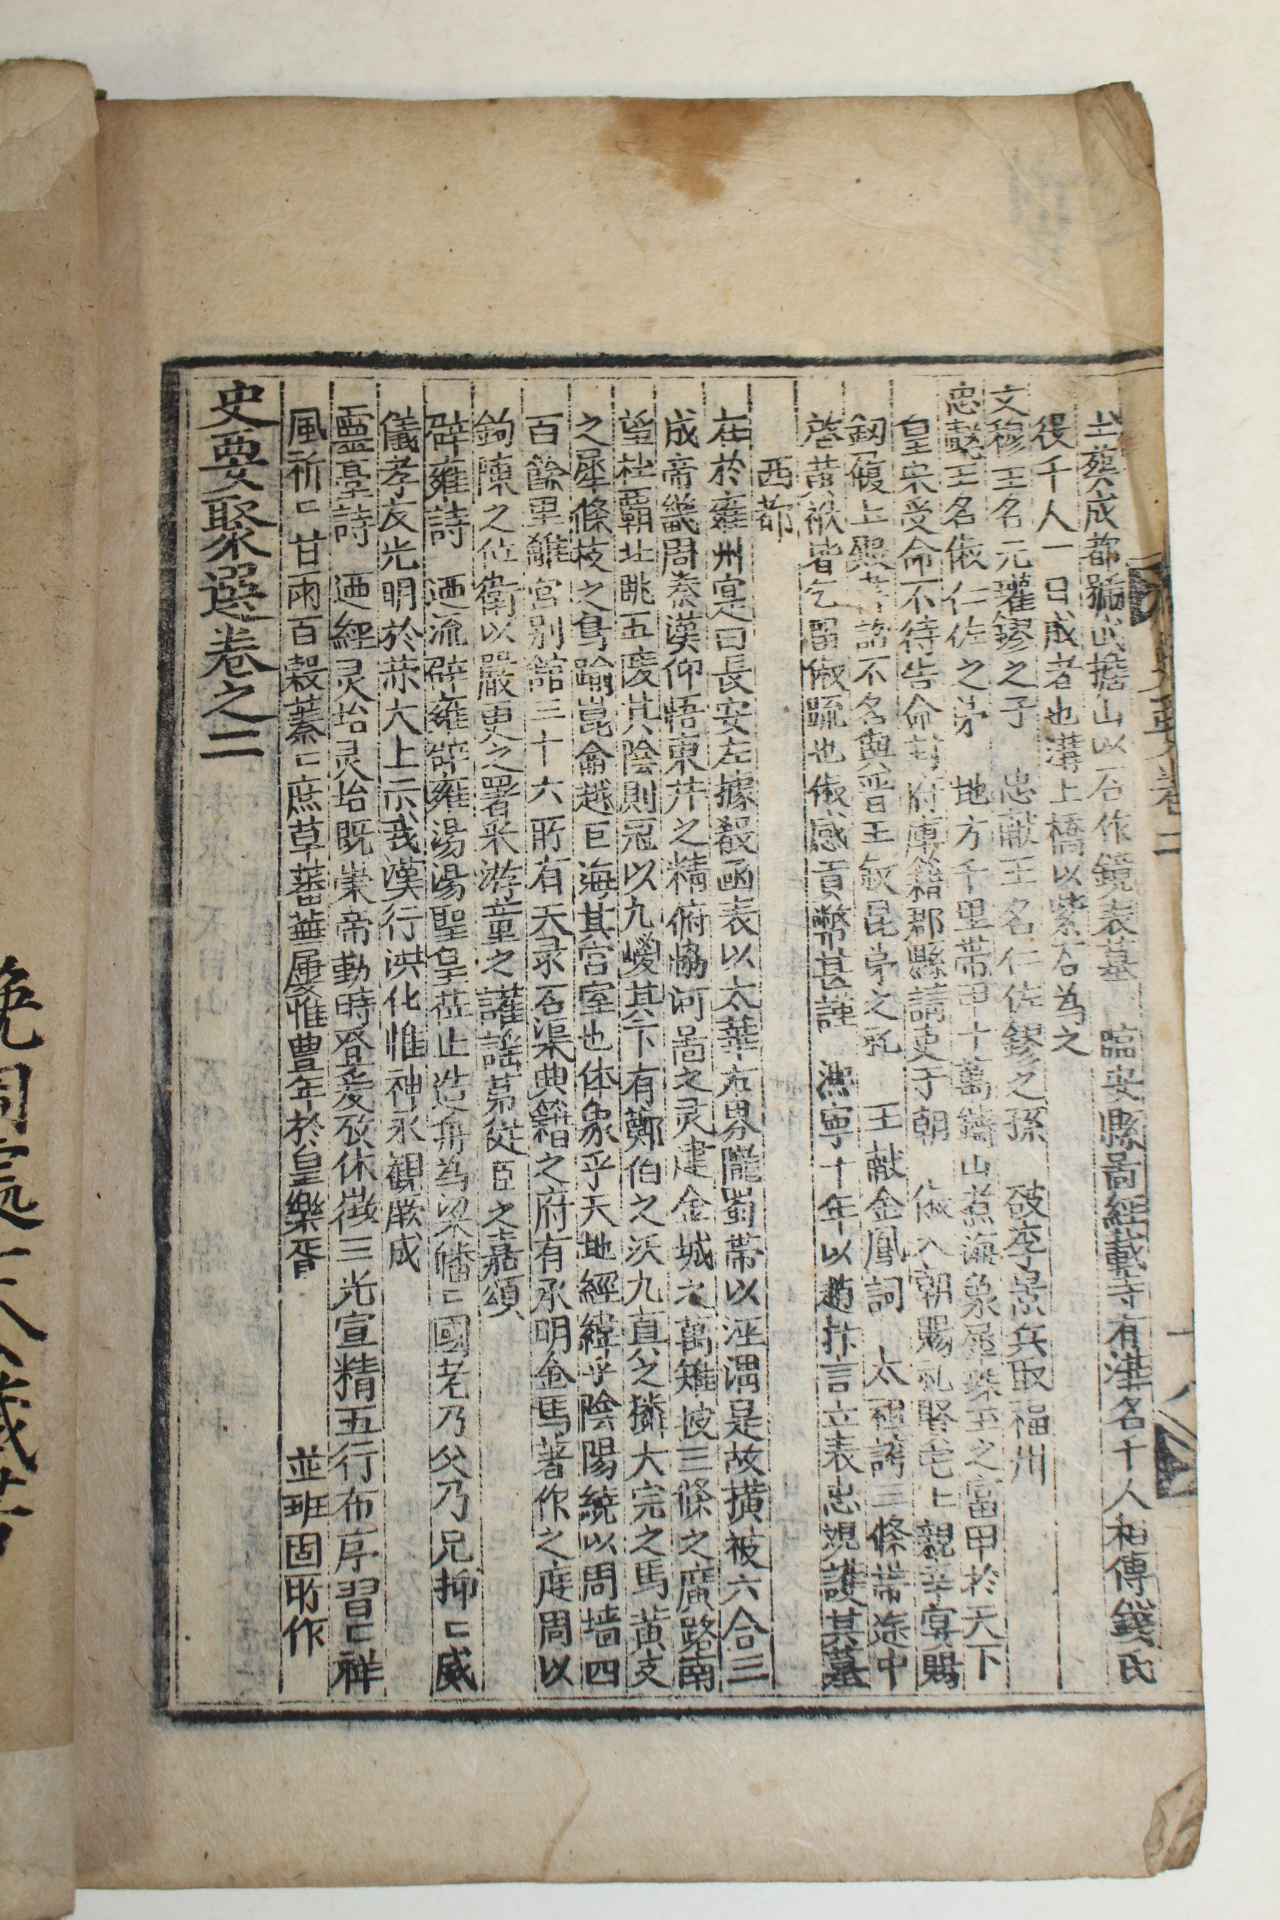 士葬成都猶武擔山以石作鏡表墓 臨安縣啚經載寺有湛名千人相傳錢氏
役千人一日成者也溝上橋以紫石為之
文穆王名元瓘鏐之子 忠献王名仁佐鏐之孫 破李景兵取福州
忠懿王名俶仁佐之弟 地方千里帶甲十萬鑄山煮海象犀珠玉之富甲於天下
皇宋受命不待告命封府庫籍郡縣請吏于朝 俶入朝賜礼賢宅上親幸宴賜
釼履上殿書詔不名與晋王敍昆弟之礼 王献金鳳詞 太祖誇三條帶途中
啓黃袱皆乞留俶䟽也俶感貢幣甚謹 凞寧十年以趙抃言立表忠觀護其墓
西都
在於雍州寔曰長安左據殽函表以太華右界隴蜀帶以涇渭是故橫被六合三
成帝畿周秦漢仰悟東井之精俯恊河啚之灵建金城之萬雉披三條之廣路南
望杜覇北眺五陵其陰則冠以九嵕其下有鄭伯之沃九真之獜大完之馬黃支
之犀條枝之鳥踰崑侖越巨海其宮室也体象乎天地經緯乎陰陽繞以周墻四
百餘里離宮别舘三十六所有天录石渠典籍之府有承明金馬著作之庭周以
鉤陳之位衛以嚴更之署采游童之讙謠苐從臣之嘉頌
辟雍詩 迺流辟雍辟雍湯湯聖皇莅止造舟為梁皤〻國老乃父乃兄抑〻威
儀孝友光明於赤太上示我漢行洪化惟神永観厥成
靈臺詩 迺經灵坮灵坮既崇帝勤時登爰孜休徴三光宣精五行布序習〻祥
風祈〻甘雨百穀蓁〻庶草蕃蕪屢惟豊年於皇樂胥 並班固所作
史要聚選卷之二